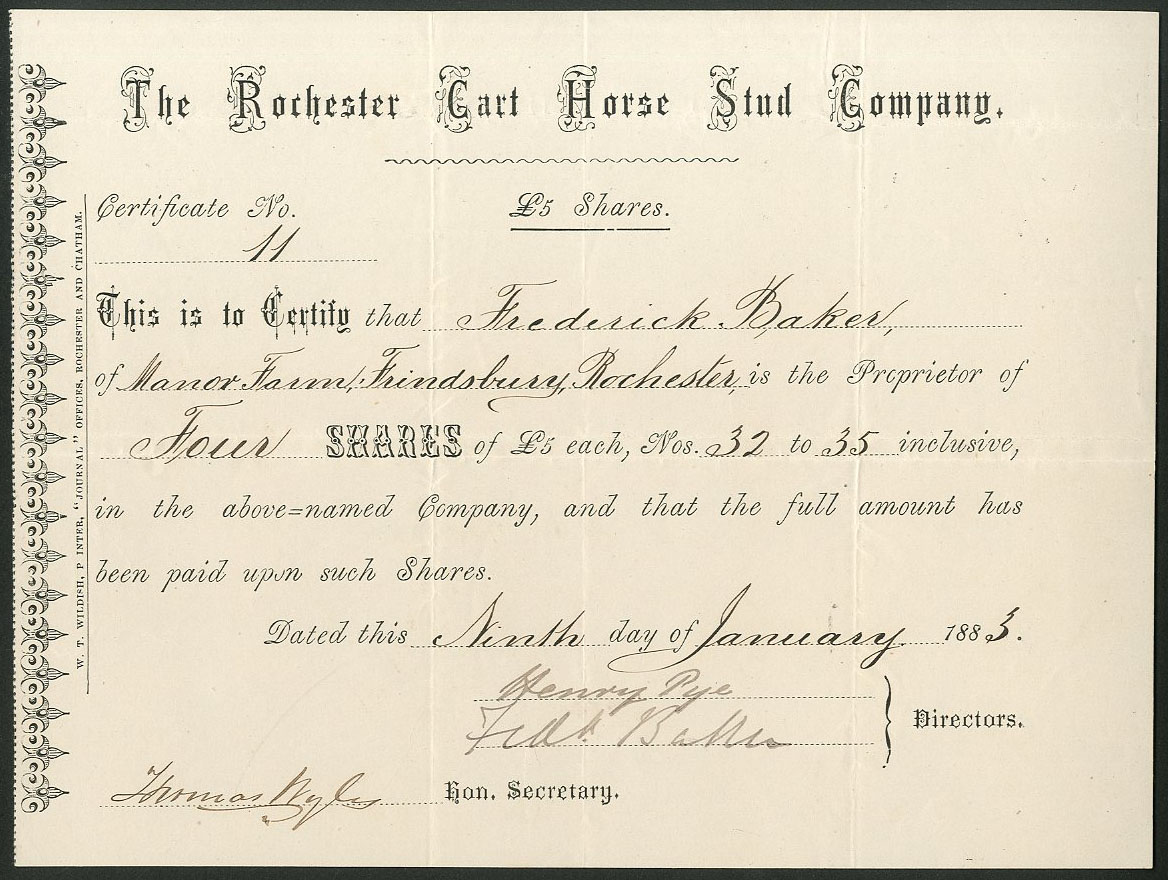 The Rochester Cart Horse Stud Company.
Certificate No.
£5 Shares.
11
This is to Certify that Frederick Baker,
of Manor Farm, Frindsbury, Rochester, is the Proprietor of
Four SHARES of £5 each, Nos. 32 to 35 inclusive,
in the above=named Company, and that the full amount has
been paid upon such Shares.
Dated this Ninth day of January 1883.
Henry Pye
Fredk. Baker
Directors.
Thomas Hon. Secretary.
W. T. WILDISH, P INTER, "JOURNAL" OFFICES, ROCHESTER AND CHATHAM.